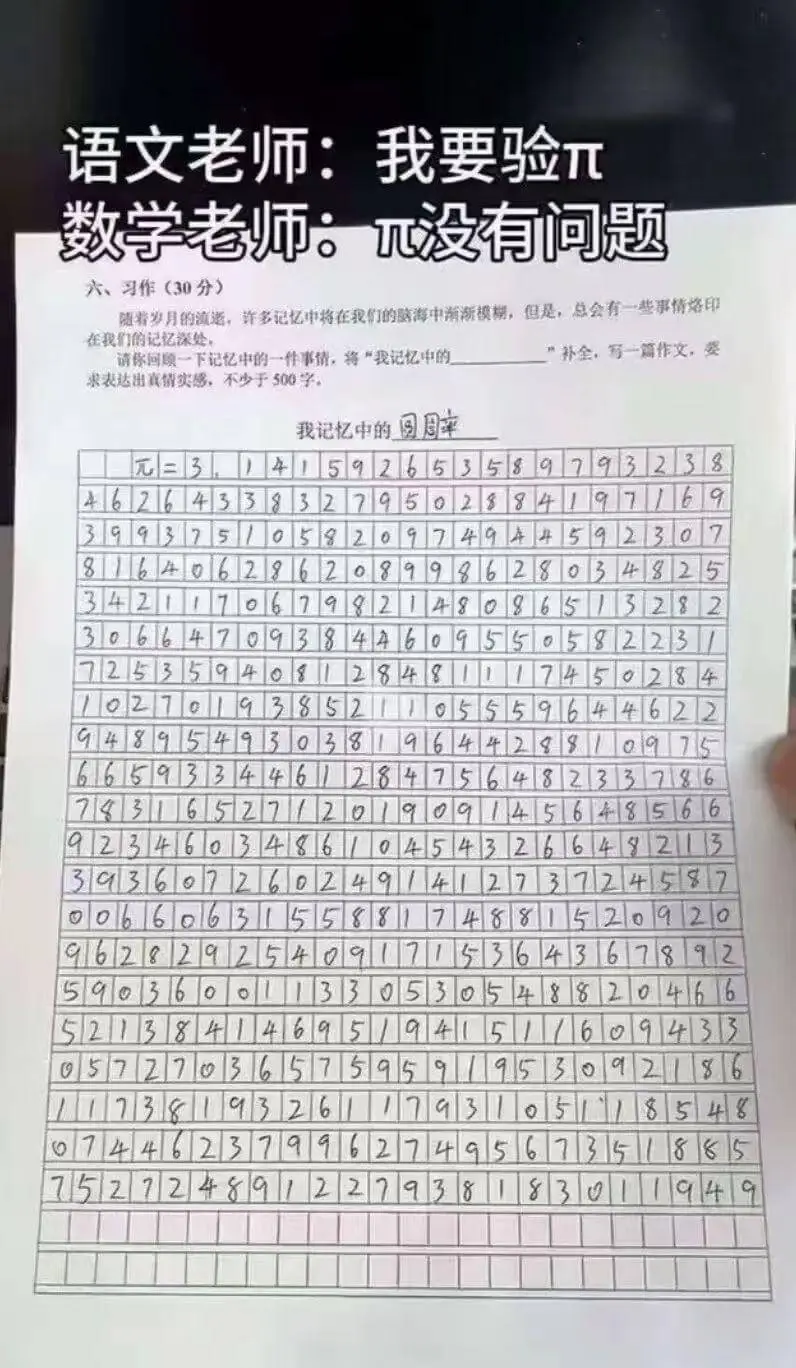 语文老师：我要验π
数学老师：π没有问题
六、习作（30分）
随着岁月的流逝，许多记忆中将在我们的脑海中渐渐模糊，但是，总会有一些事情烙印
在我们的记忆深处。
请你回顾一下记忆中的一件事情，将“我记忆中的__________”补全，写一篇作文，要
求表达出真情实感，不少于500字。
我记忆中的圆周率
π=3.141592653589793238
462643383279502884197169
399375105820974944592307
816406286208998628034825
342117067982148086513282
306647093844609550582231
725359408128481117450284
102701938521105559644622
948954930381964428810975
665933446128475648233786
783165271201909145648566
923460348610454326648213
393607260249141273724587
006606315588174881520920
962829254091715364367892
590360011330530548820466
521384146951941511609433
057270365759591953092186
117381932611793105118548
074462379962749567351885
752724891227938183011949